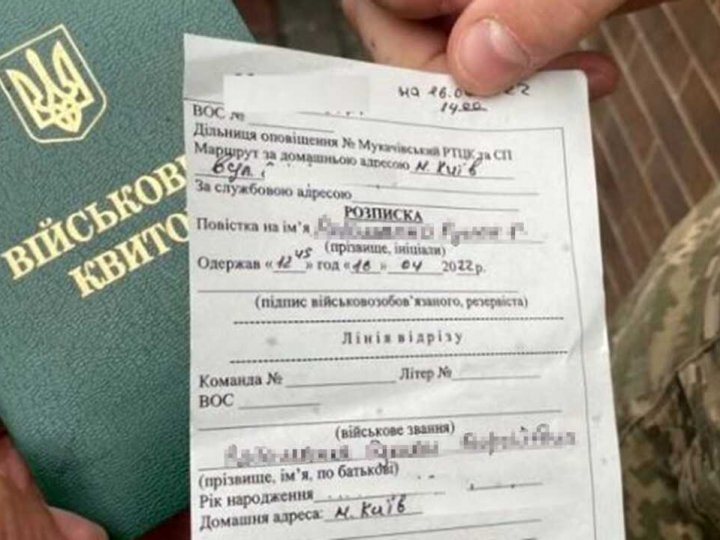 ВІЙСЬКОВИ
КВИТО
на 16.0
14.00
ВОС №
Дільниця оповіщення № Мукачівський РТЦК та СП
Маршрут за домашньою адресою м. Київ
вул.
За службовою адресою
РОЗПИСКА
Повістка на ім'я
(прізвище, ініціали)
Одержав «12 45» год «16» 04 2022р.
(підпис військовозобов'язаного, резервіста)
Лінія відрізу
Команда № Літер №
ВОС
(військове звання)
(прізвище, ім'я, по батькові)
Рік народження
Домашня адреса: м. Київ